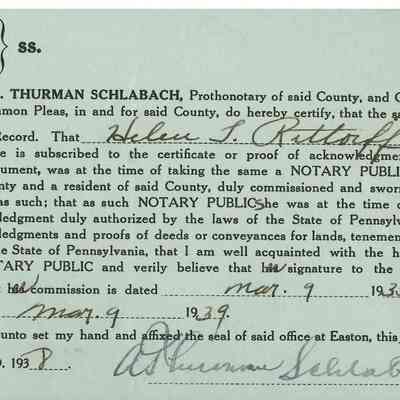 ss.
. THURMAN SCHLABACH, Prothonotary of said County, and C
mmon Pleas, in and for said County, do hereby certify, that the
Record. That Helen L. Rittorff
e is subscribed to the certificate or proof of acknowledgm
ument, was at the time of taking the same a NOTARY PUBL
nty and a resident of said County, duly commissioned and swor
as such; that as such NOTARY PUBLIC she was at the time of
ledgment duly authorized by the laws of the State of Pennsylv
ledgments and proofs of deeds or conveyances for lands, tenemen
e State of Pennsylvania, that I am well acquainted with the h
TARY PUBLIC and verily believe that signature to the
t commission is dated Mar. 9 193
Mar. 9 1939.
unto set my hand and affixed the seal of said office at Easton, this
D. 1938 A Thurman Schlab